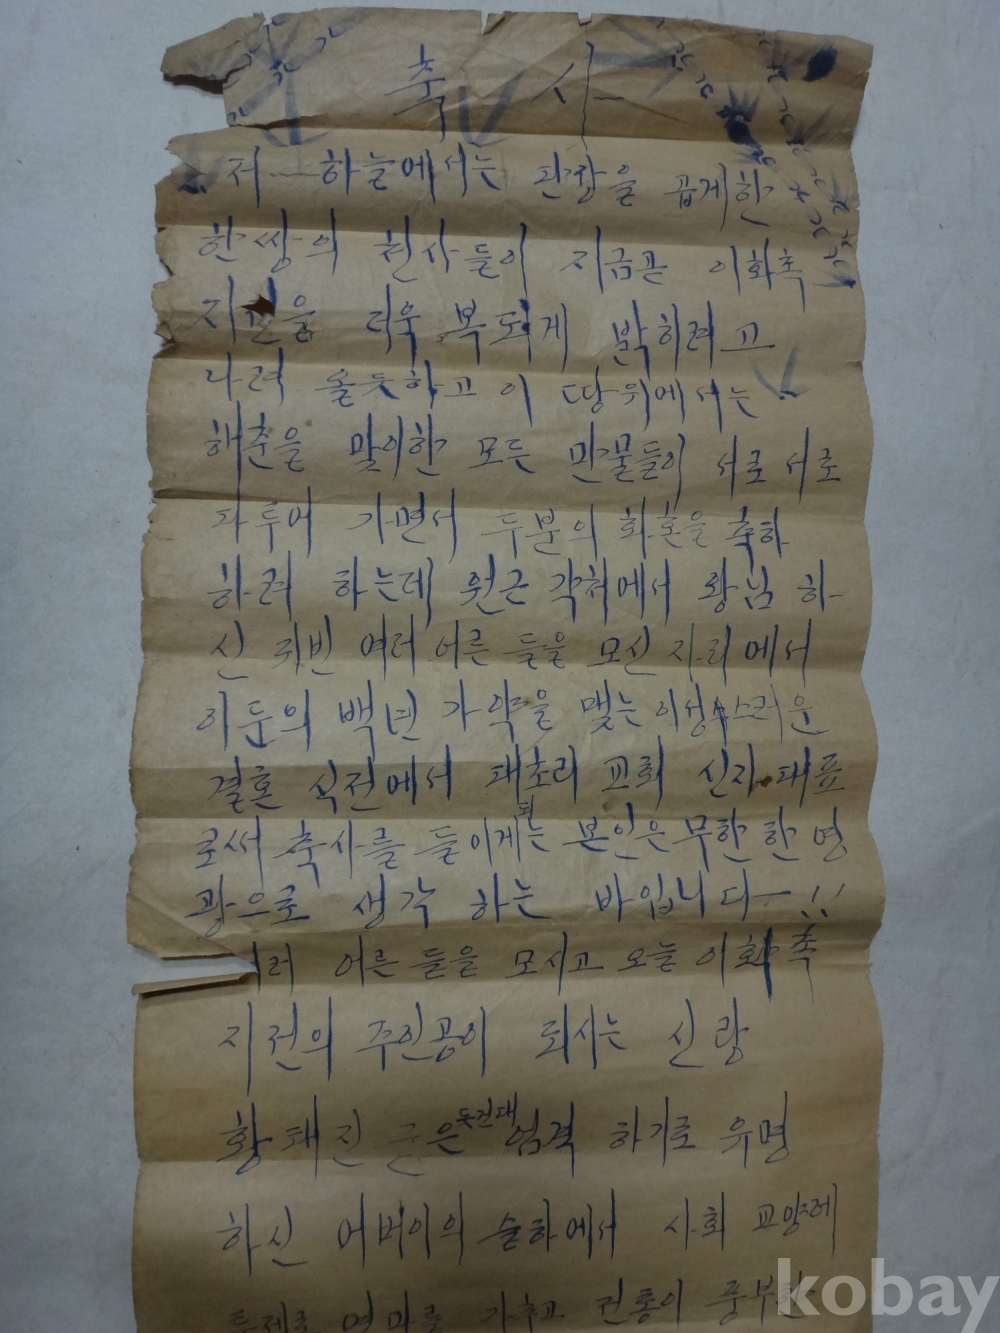 축 사
저 — 하늘에서는 관장을 곱게한
한쌍의 천사들이 지금곧 이화촉
지전을 더욱 복되게 밝히려고
나려 올듯하고 이 땅위에서는
해춘을 맞이한 모든 만물들이 서로 서로
다투어 가면서 두분의 화혼을 축하
하려 하는데 원근 각처에서 왕님 하
신 귀빈 여러 어른 들을 모신 자리에서
이둘의 백년 가약을 맺는 이성스러운
결혼 식전에서 대초리 교회 신자 대표
로써 축사를 들이게되는 본인은 무한한 영
광으로 생각 하는 바입니다— !!
러 어른 들을 모시고 오늘 이화촉
지전의 주인공이 되시는 신랑
황태진 군은 듯건대 엄격 하기로 유명
하신 어버이의 슬하에서 사회 교양에
가추고 전통이 풍부한
kobay